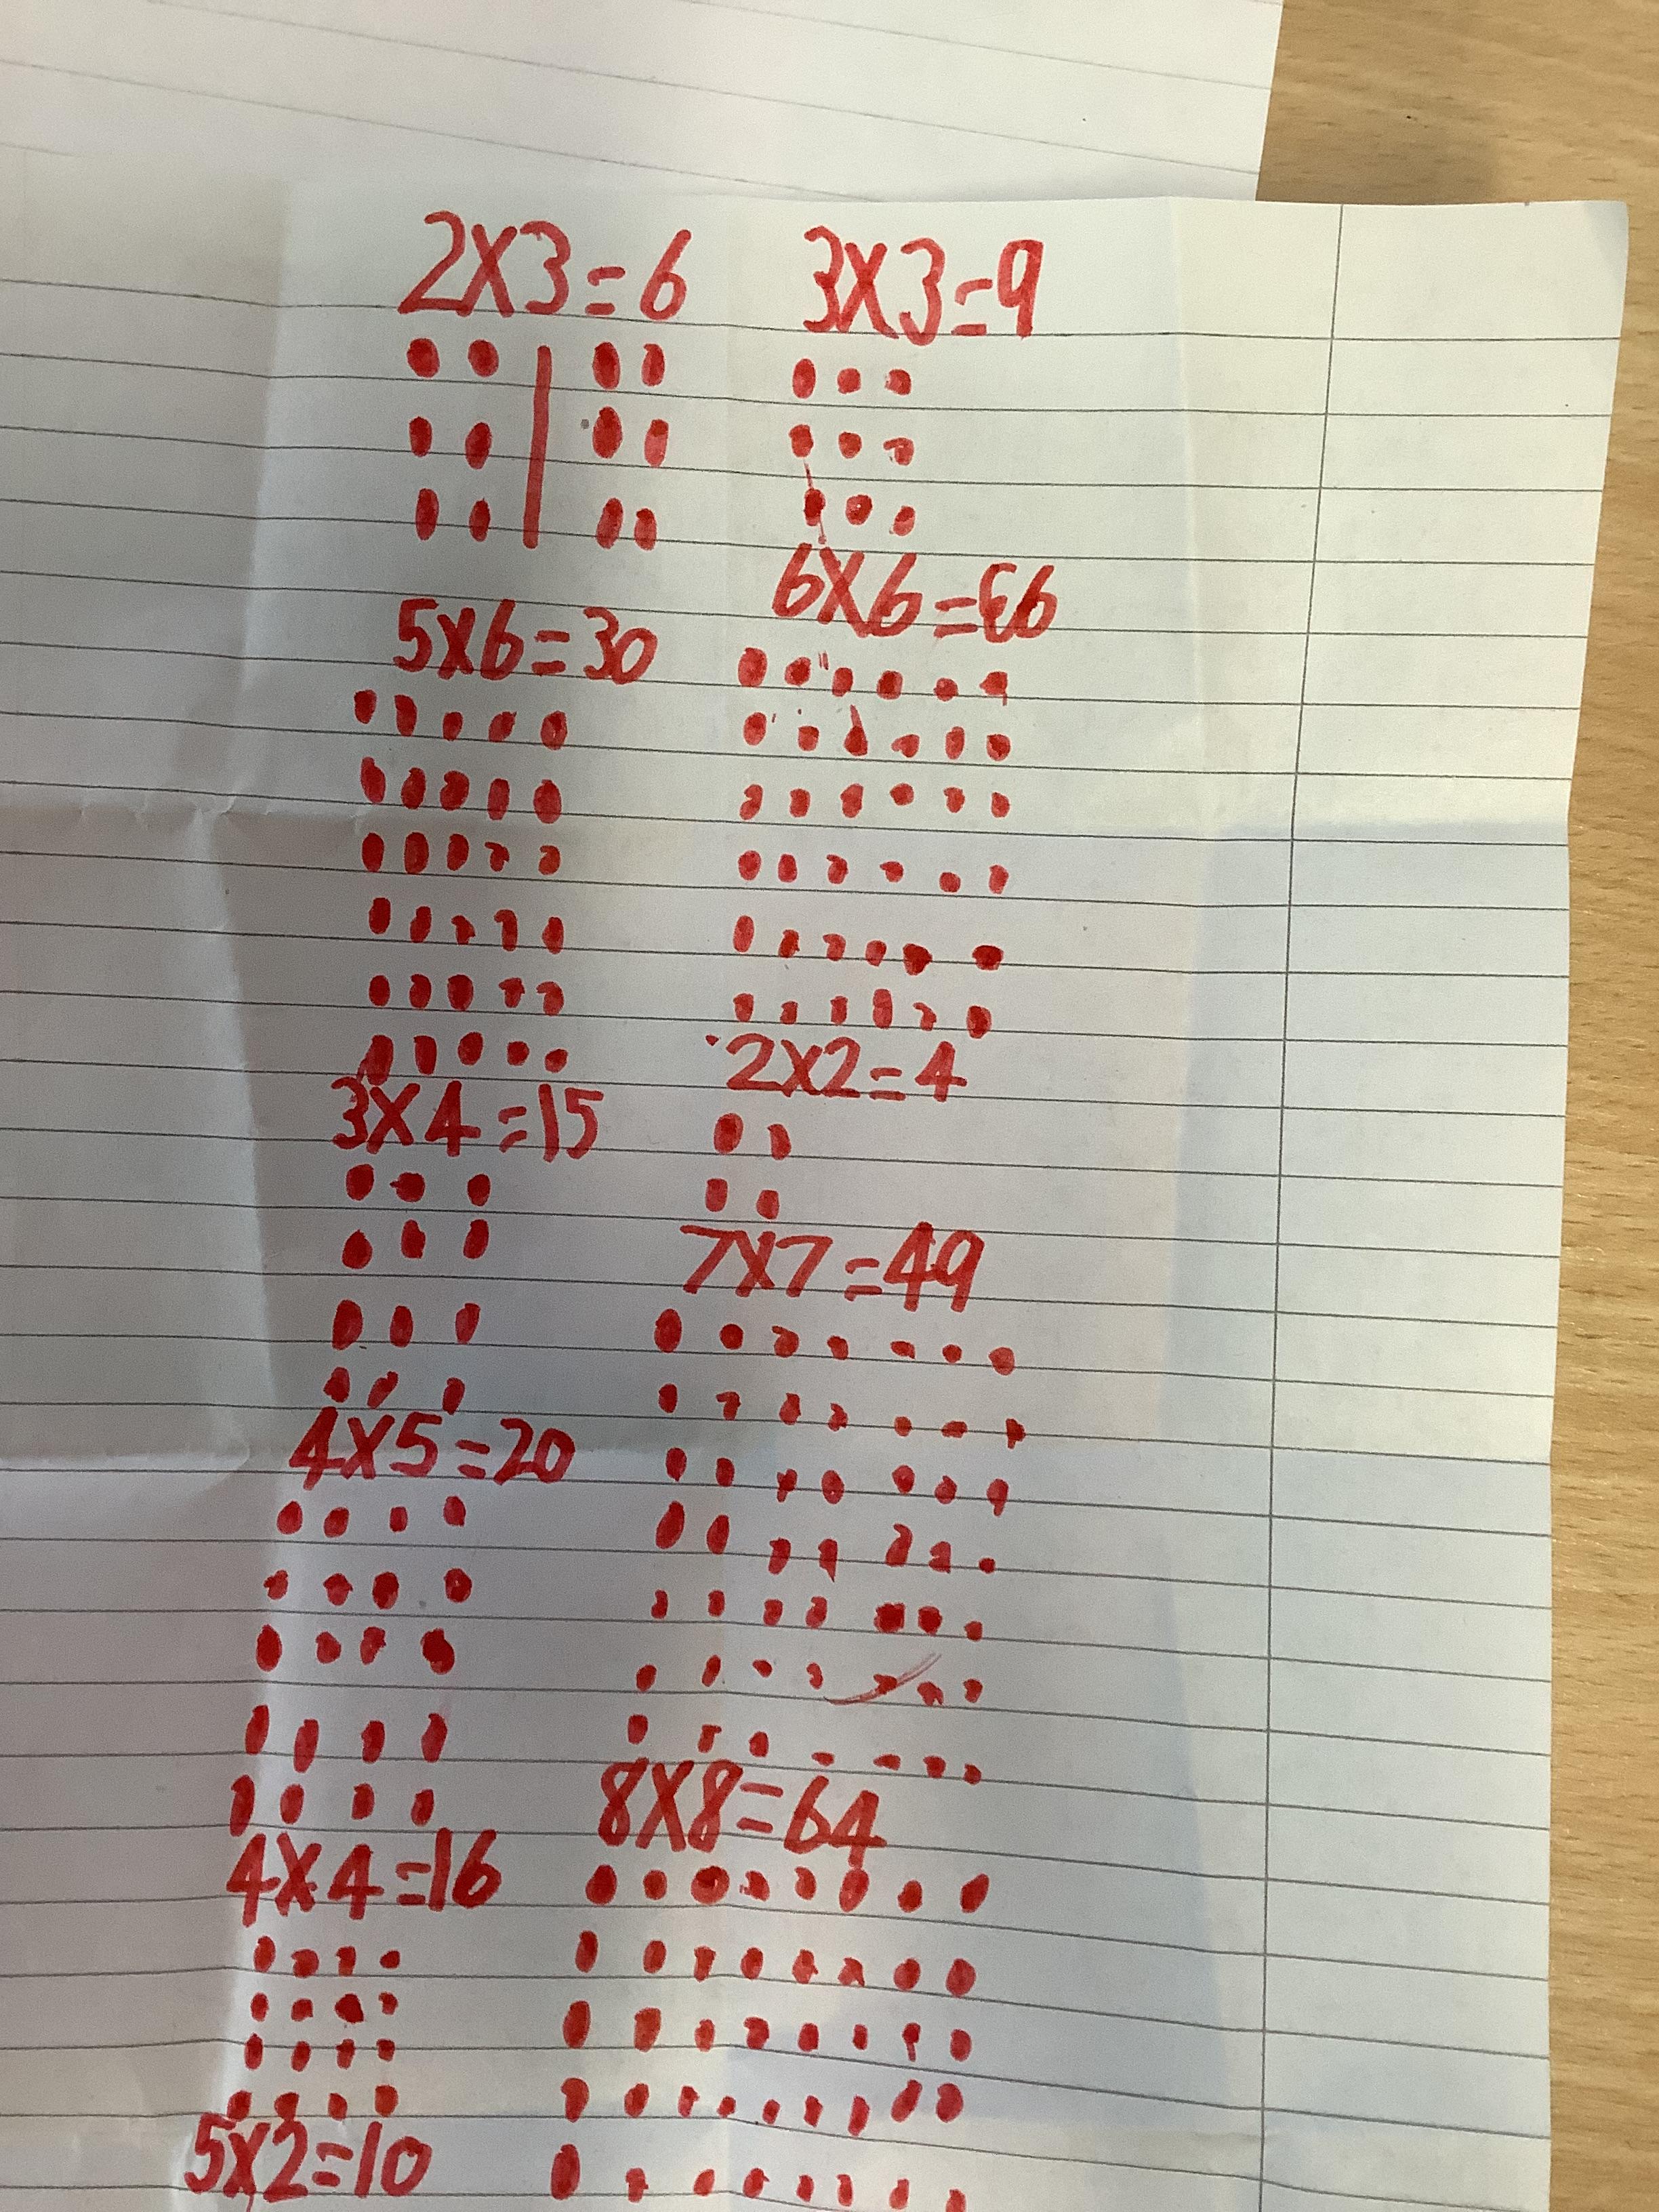 2X3=6
3X3=9
5X6=30
6X6=36
3X4=15
2X2=4
4X5=20
7X7=49
4X4=16
8X8=64
5X2=10